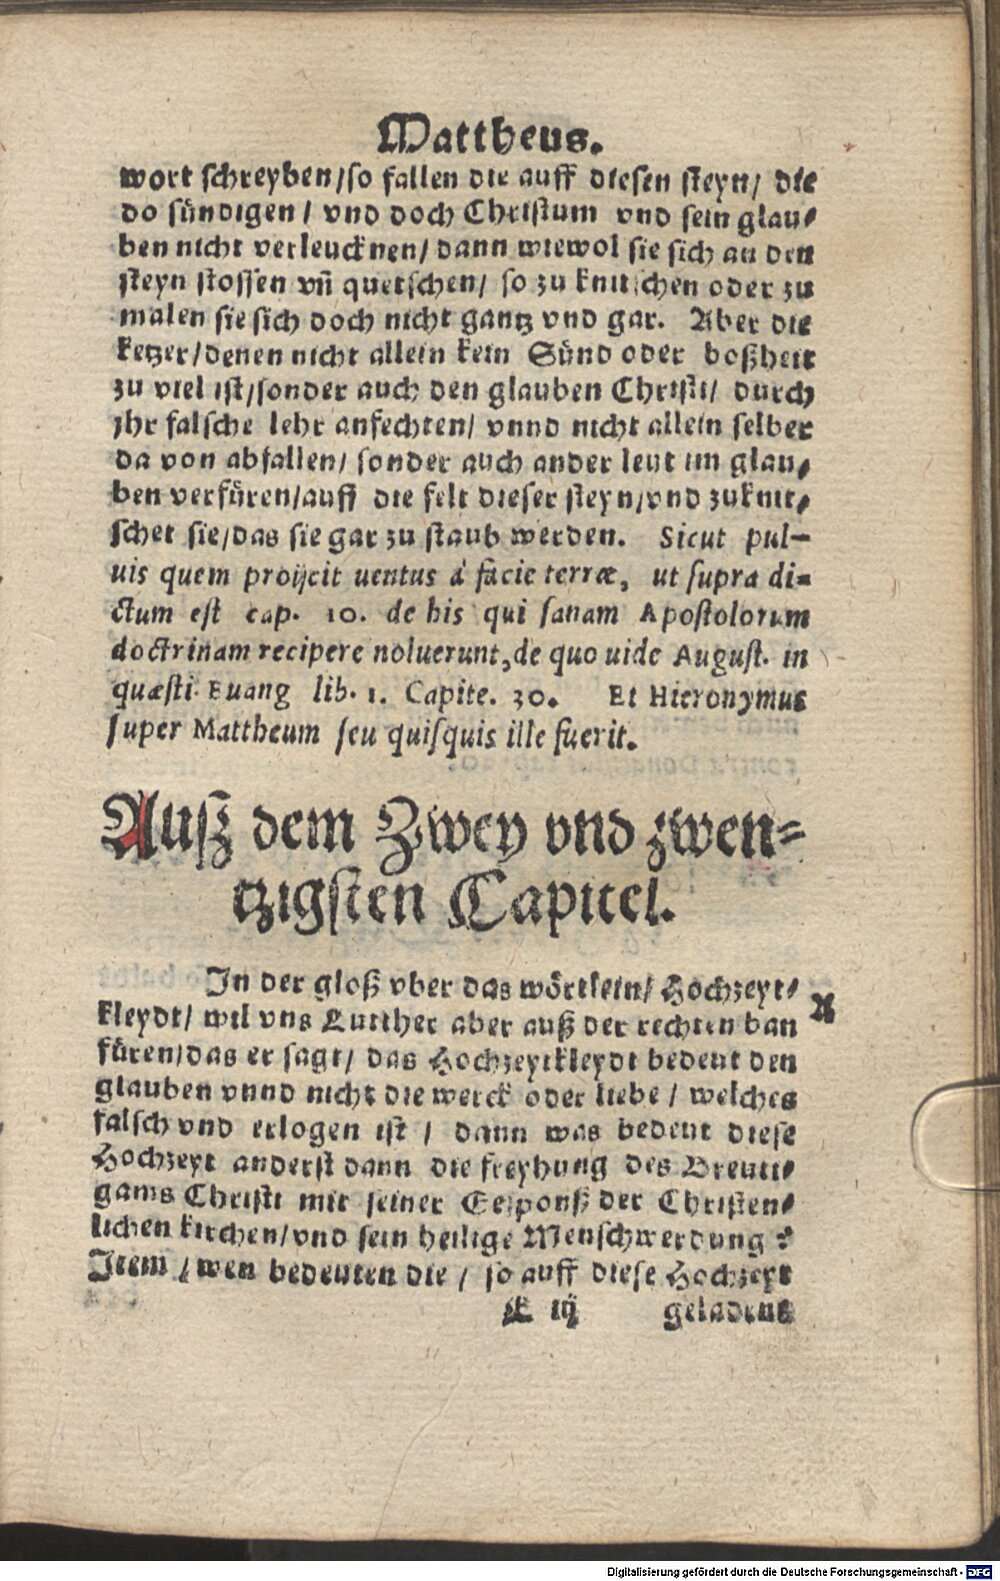 Mattheus.
wort schreyben/so fallen die auff diesen steyn/ die
do sündigen / vnd doch Christum vnd sein glau⸗
ben nicht verleucknen/ dann wiewol sie sich an den
steyn stossen vñ quetschen/ so zu knitschen oder zu
malen sie sich doch nicht gantz vnd gar. Aber die
ketzer/denen nicht allein kein Sünd oder boßheit
zu viel ist/sonder auch den glauben Christi/ durch
jhr falsche lehr anfechten/ vnnd nicht allein selber
da von abfallen/ sonder auch ander leut im glau⸗
ben verfüren/auff die felt dieser steyn/vnd zuknit⸗
schet sie/das sie gar zu staub werden. Sicut pul-
uis quem proijcit uentus à facie terræ, ut supra di-
ctum est cap. 10. de his qui sanam Apostolorum
doctrinam recipere noluerunt,de quo uide August. in
quæsti. Euang lib. 1. Capite. 30. Et Hieronymus
super Mattheum seu quisquis ille fuerit.
Auß dem Zwey vnd zwen⸗
tzigsten Capitel.
In der gloß vber das wörtlein/ Hochzeyt⸗
kleydt/ wil vns Lutther aber auß der rechten ban
füren/das er sagt/ das Hochzeytkleydt bedeut den
glauben vnnd nicht die werck oder liebe / welches
falsch vnd erlogen ist / dann was bedeut diese
Hochzeyt anderst dann die freyhung des Breuti⸗
gams Christi mit seiner Gesponß der Christen⸗
lichen kirchen/vnd sein heilige Menschwerdung ?
Item / wen bedeuten die / so auff diese Hochzeyt
E iij geladene
Digitalisierung gefördert durch die Deutsche Forschungsgemeinschaft - DFG